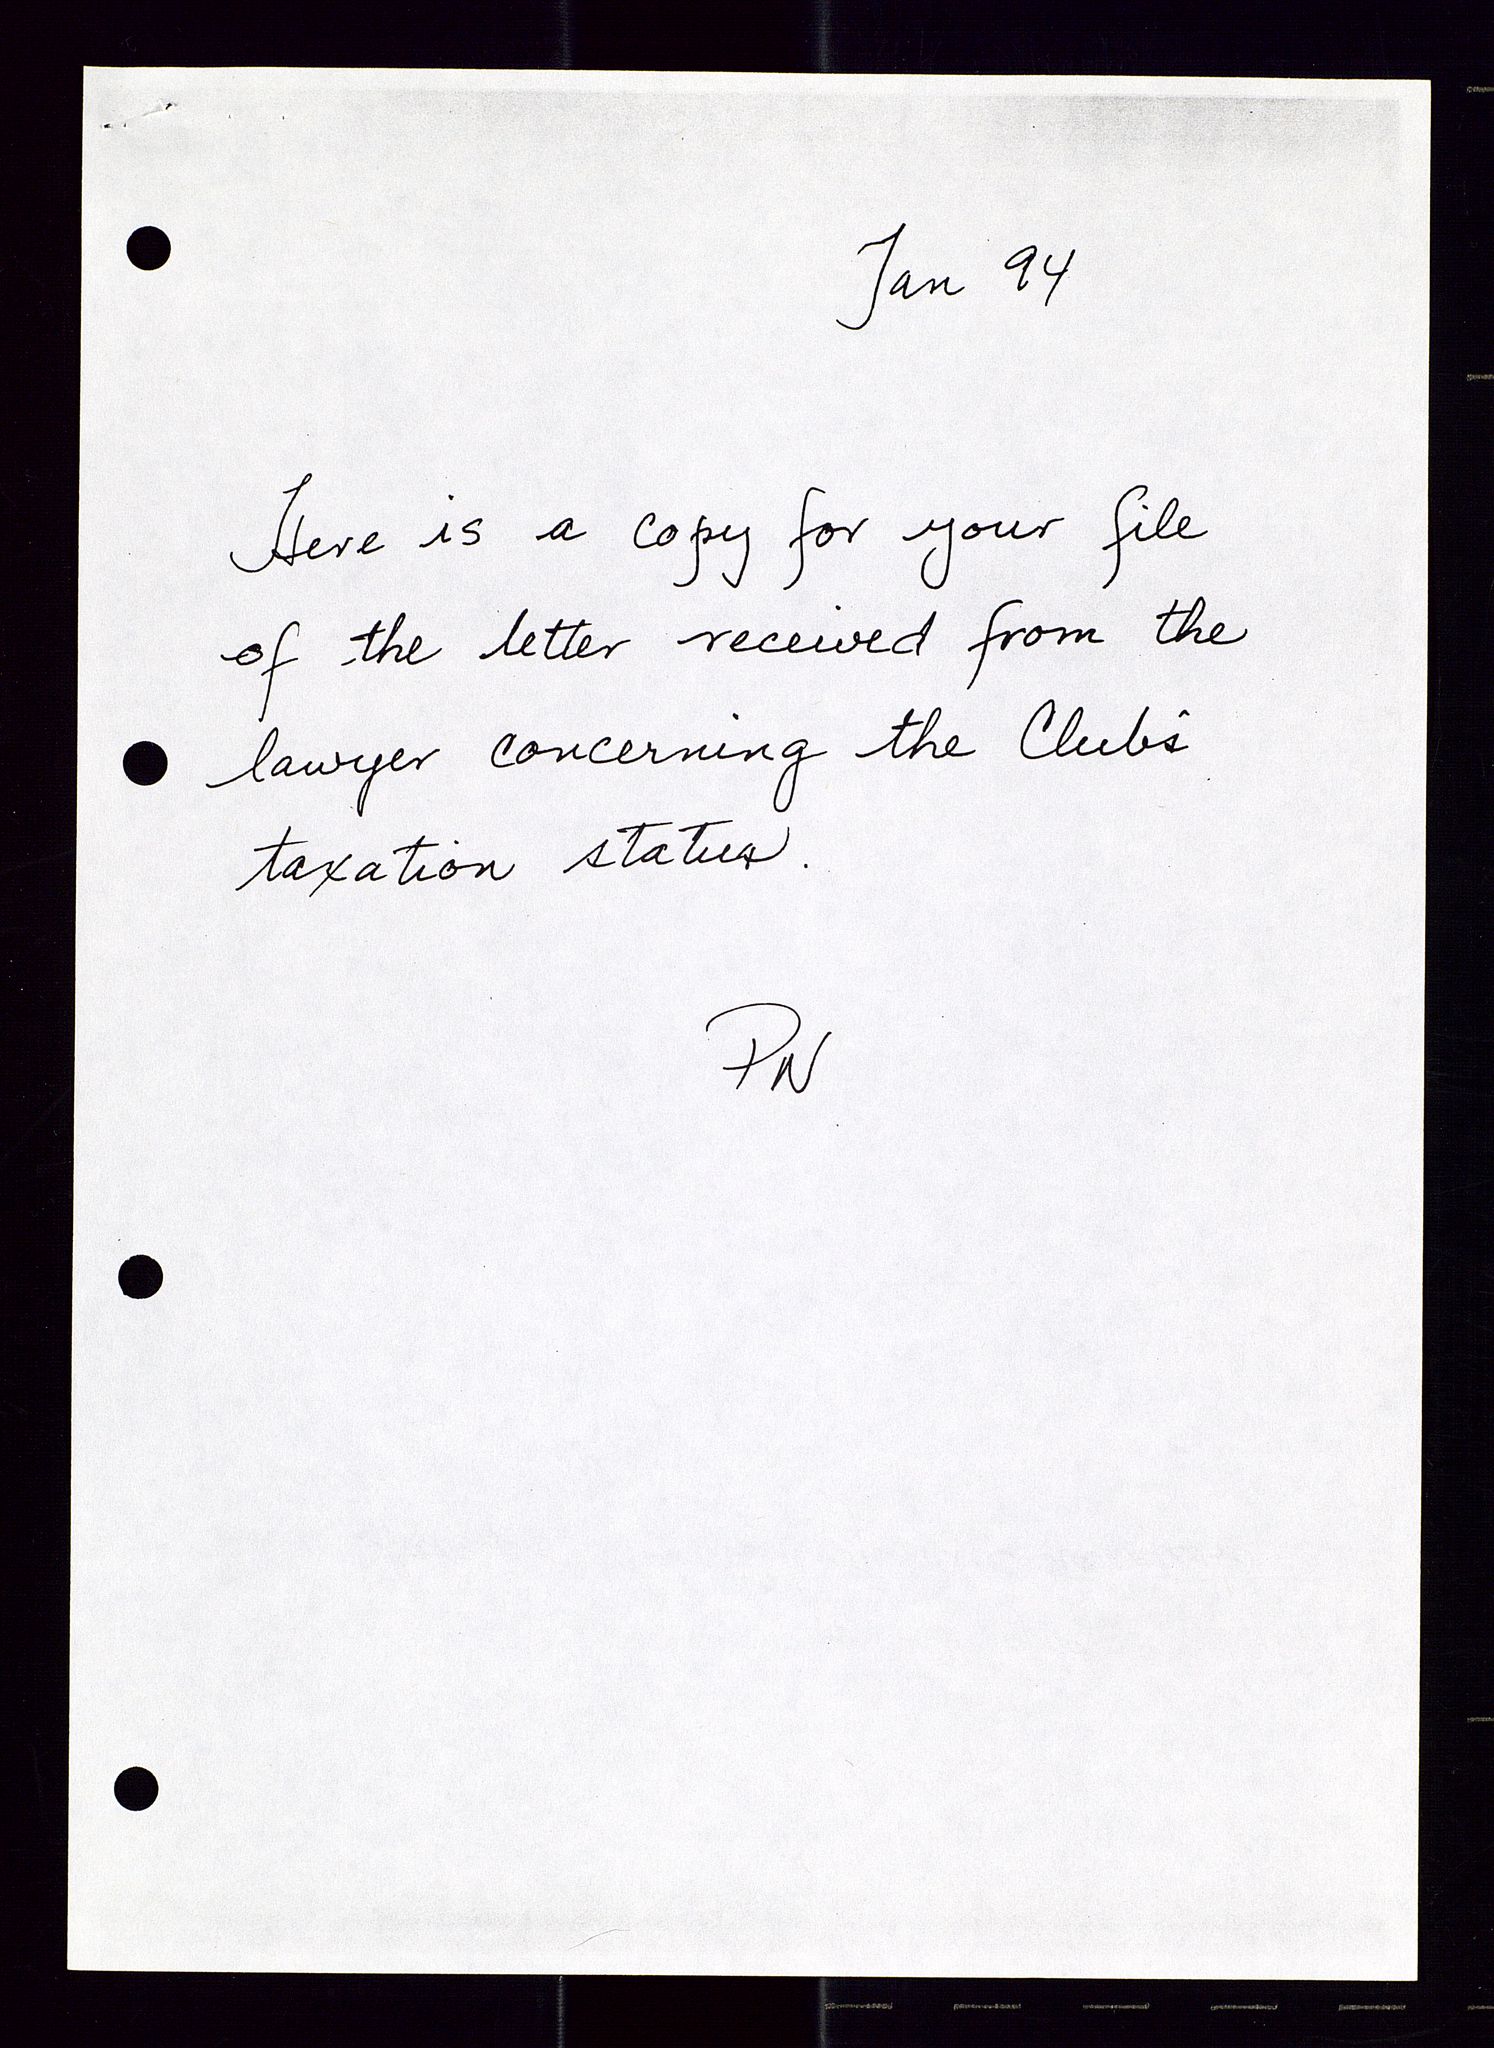 Jan 94
Here is a copy for your file
of the letter received from the
lawyer concerning the Club's
taxation status.
PN